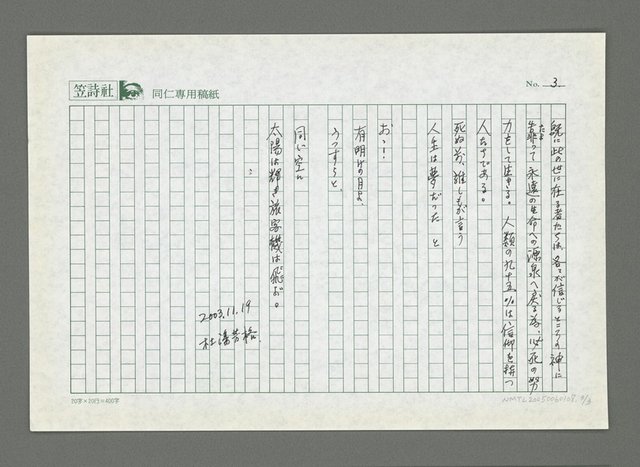 笠詩社 同仁専用稿紙
No. 3
既に此の世に在る者たちは、各々が信じるところの神に
靠って永遠の生命への源泉へ戻る為、必死の努
たよ
力をして生きる。人類の九十五%は信仰を持つ
人たちである。
死ぬ前、誰しもが言う
人生は夢だった と
おゝ!
有明けの月よ、
うっすらと、
同じ空に
太陽は輝き旅客機は飛ぶ。
2003.11.19
杜潘芳格
20字×20行=400字
NMTL20050060108. 3/3